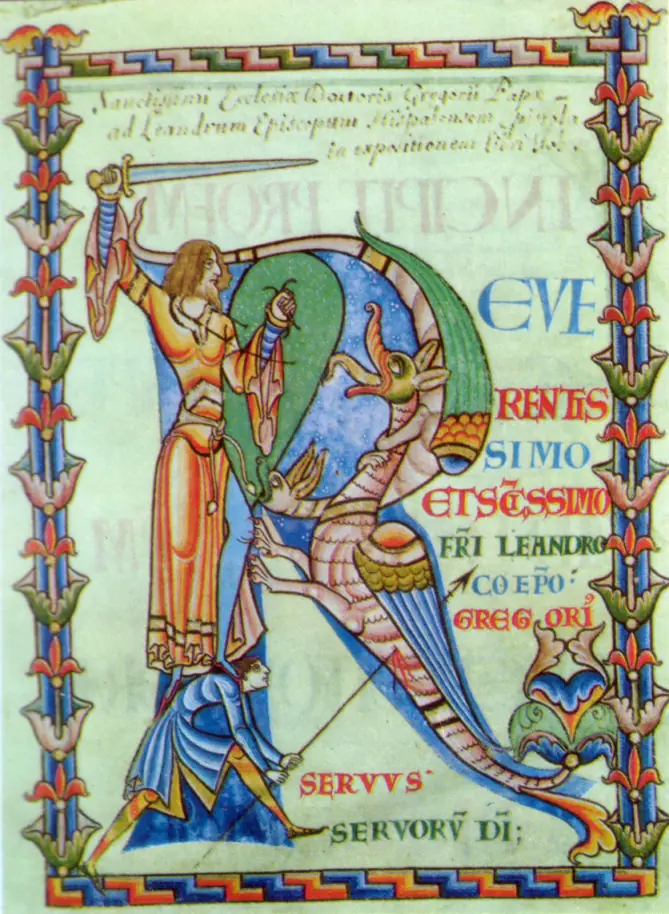 Sanctissimi Ecclesiæ Doctoris Gregorii Papæ
ad Leandrum Episcopum Hispalensem
in expositionem Libri Iob
INCIPIT PROEM
R EVE
RENTIS
SIMO
ET SC̄ISSIMO
FR̄I LEANDRO
COEPŌ
GREGORI⁹
SERVVS
SERVORV̄ DĪ;